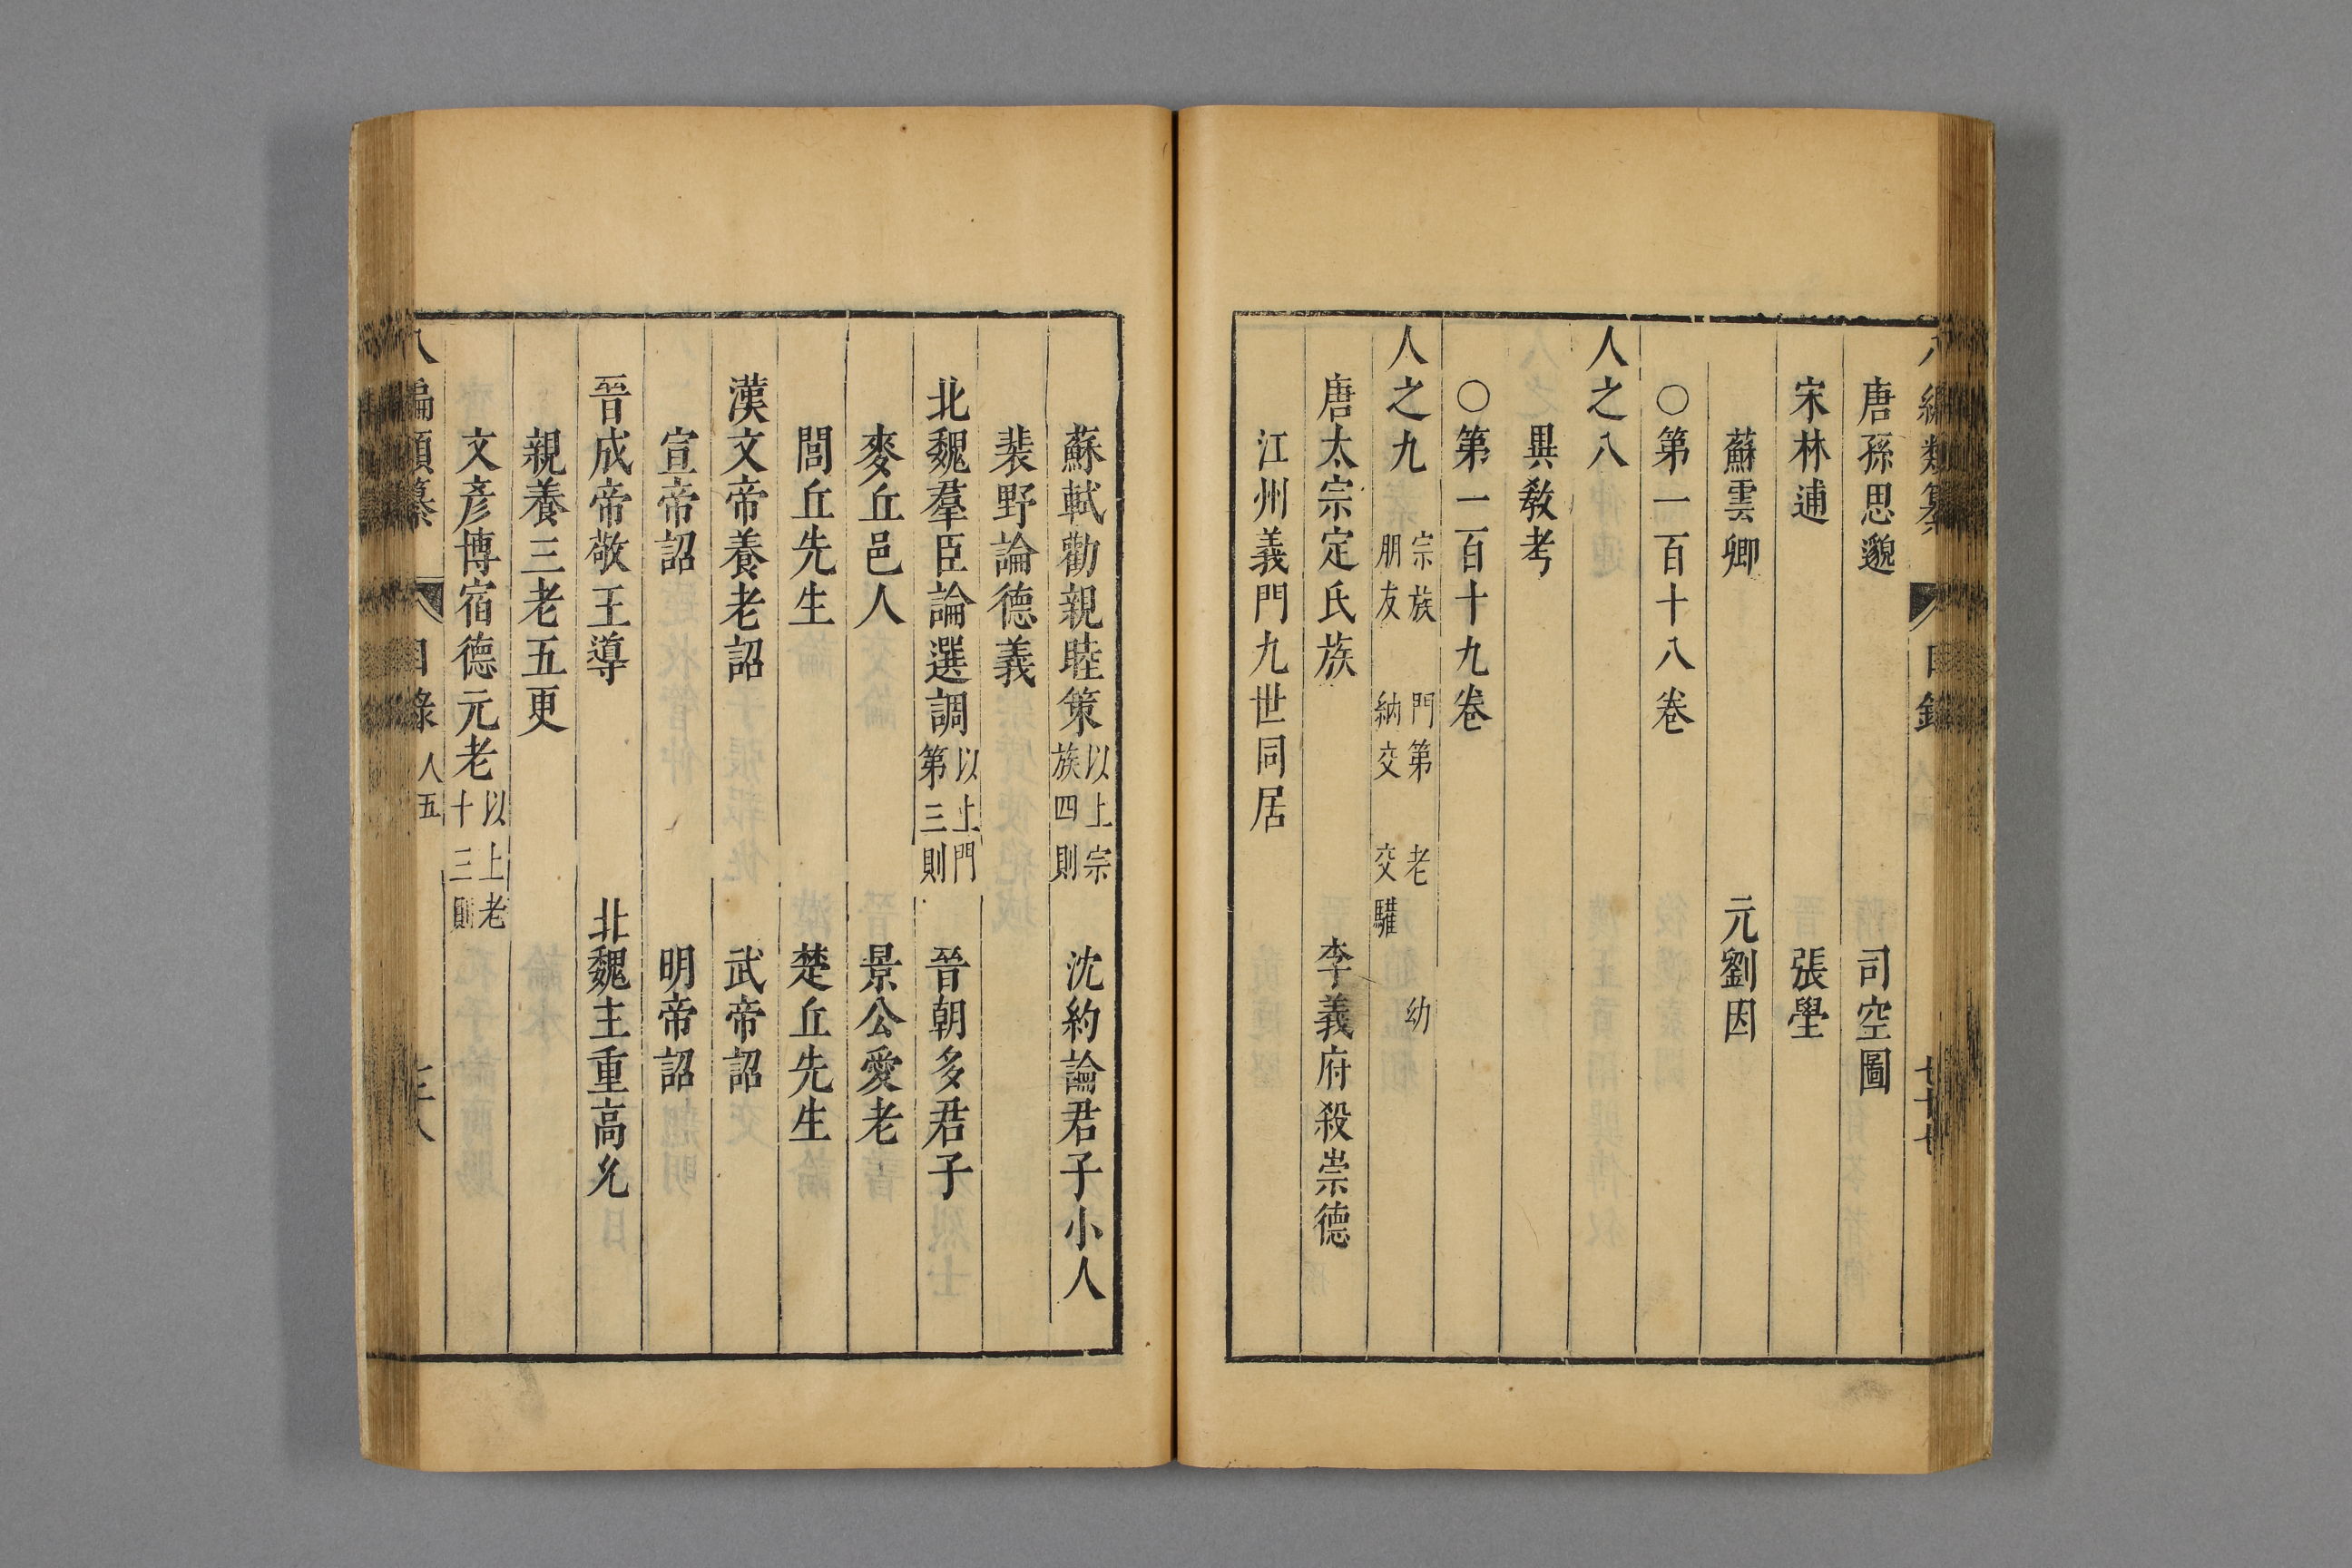 八編類纂 目錄 七十七
唐孫思邈 司空圖
宋林逋 張壆
蘇雲卿 元劉因
○第一百十八卷
人之八
異教考
○第一百十九卷
人之九 宗族 門第 老 幼
朋友 納交 交驩
唐太宗定氏族 李義府殺崇德
江州義門九世同居
蘇軾勸親睦策 以上宗族四則 沈約論君子小人
裴野論德義
北魏羣臣論選調 以上門第三則 晉朝多君子
麥丘邑人 景公愛老
閭丘先生 楚丘先生
漢文帝養老詔 武帝詔
宣帝詔 明帝詔
晉成帝敬王導 北魏主重高允
親養三老五更
文彥博宿德元老 以上老十三則
八編類纂 目錄 人五